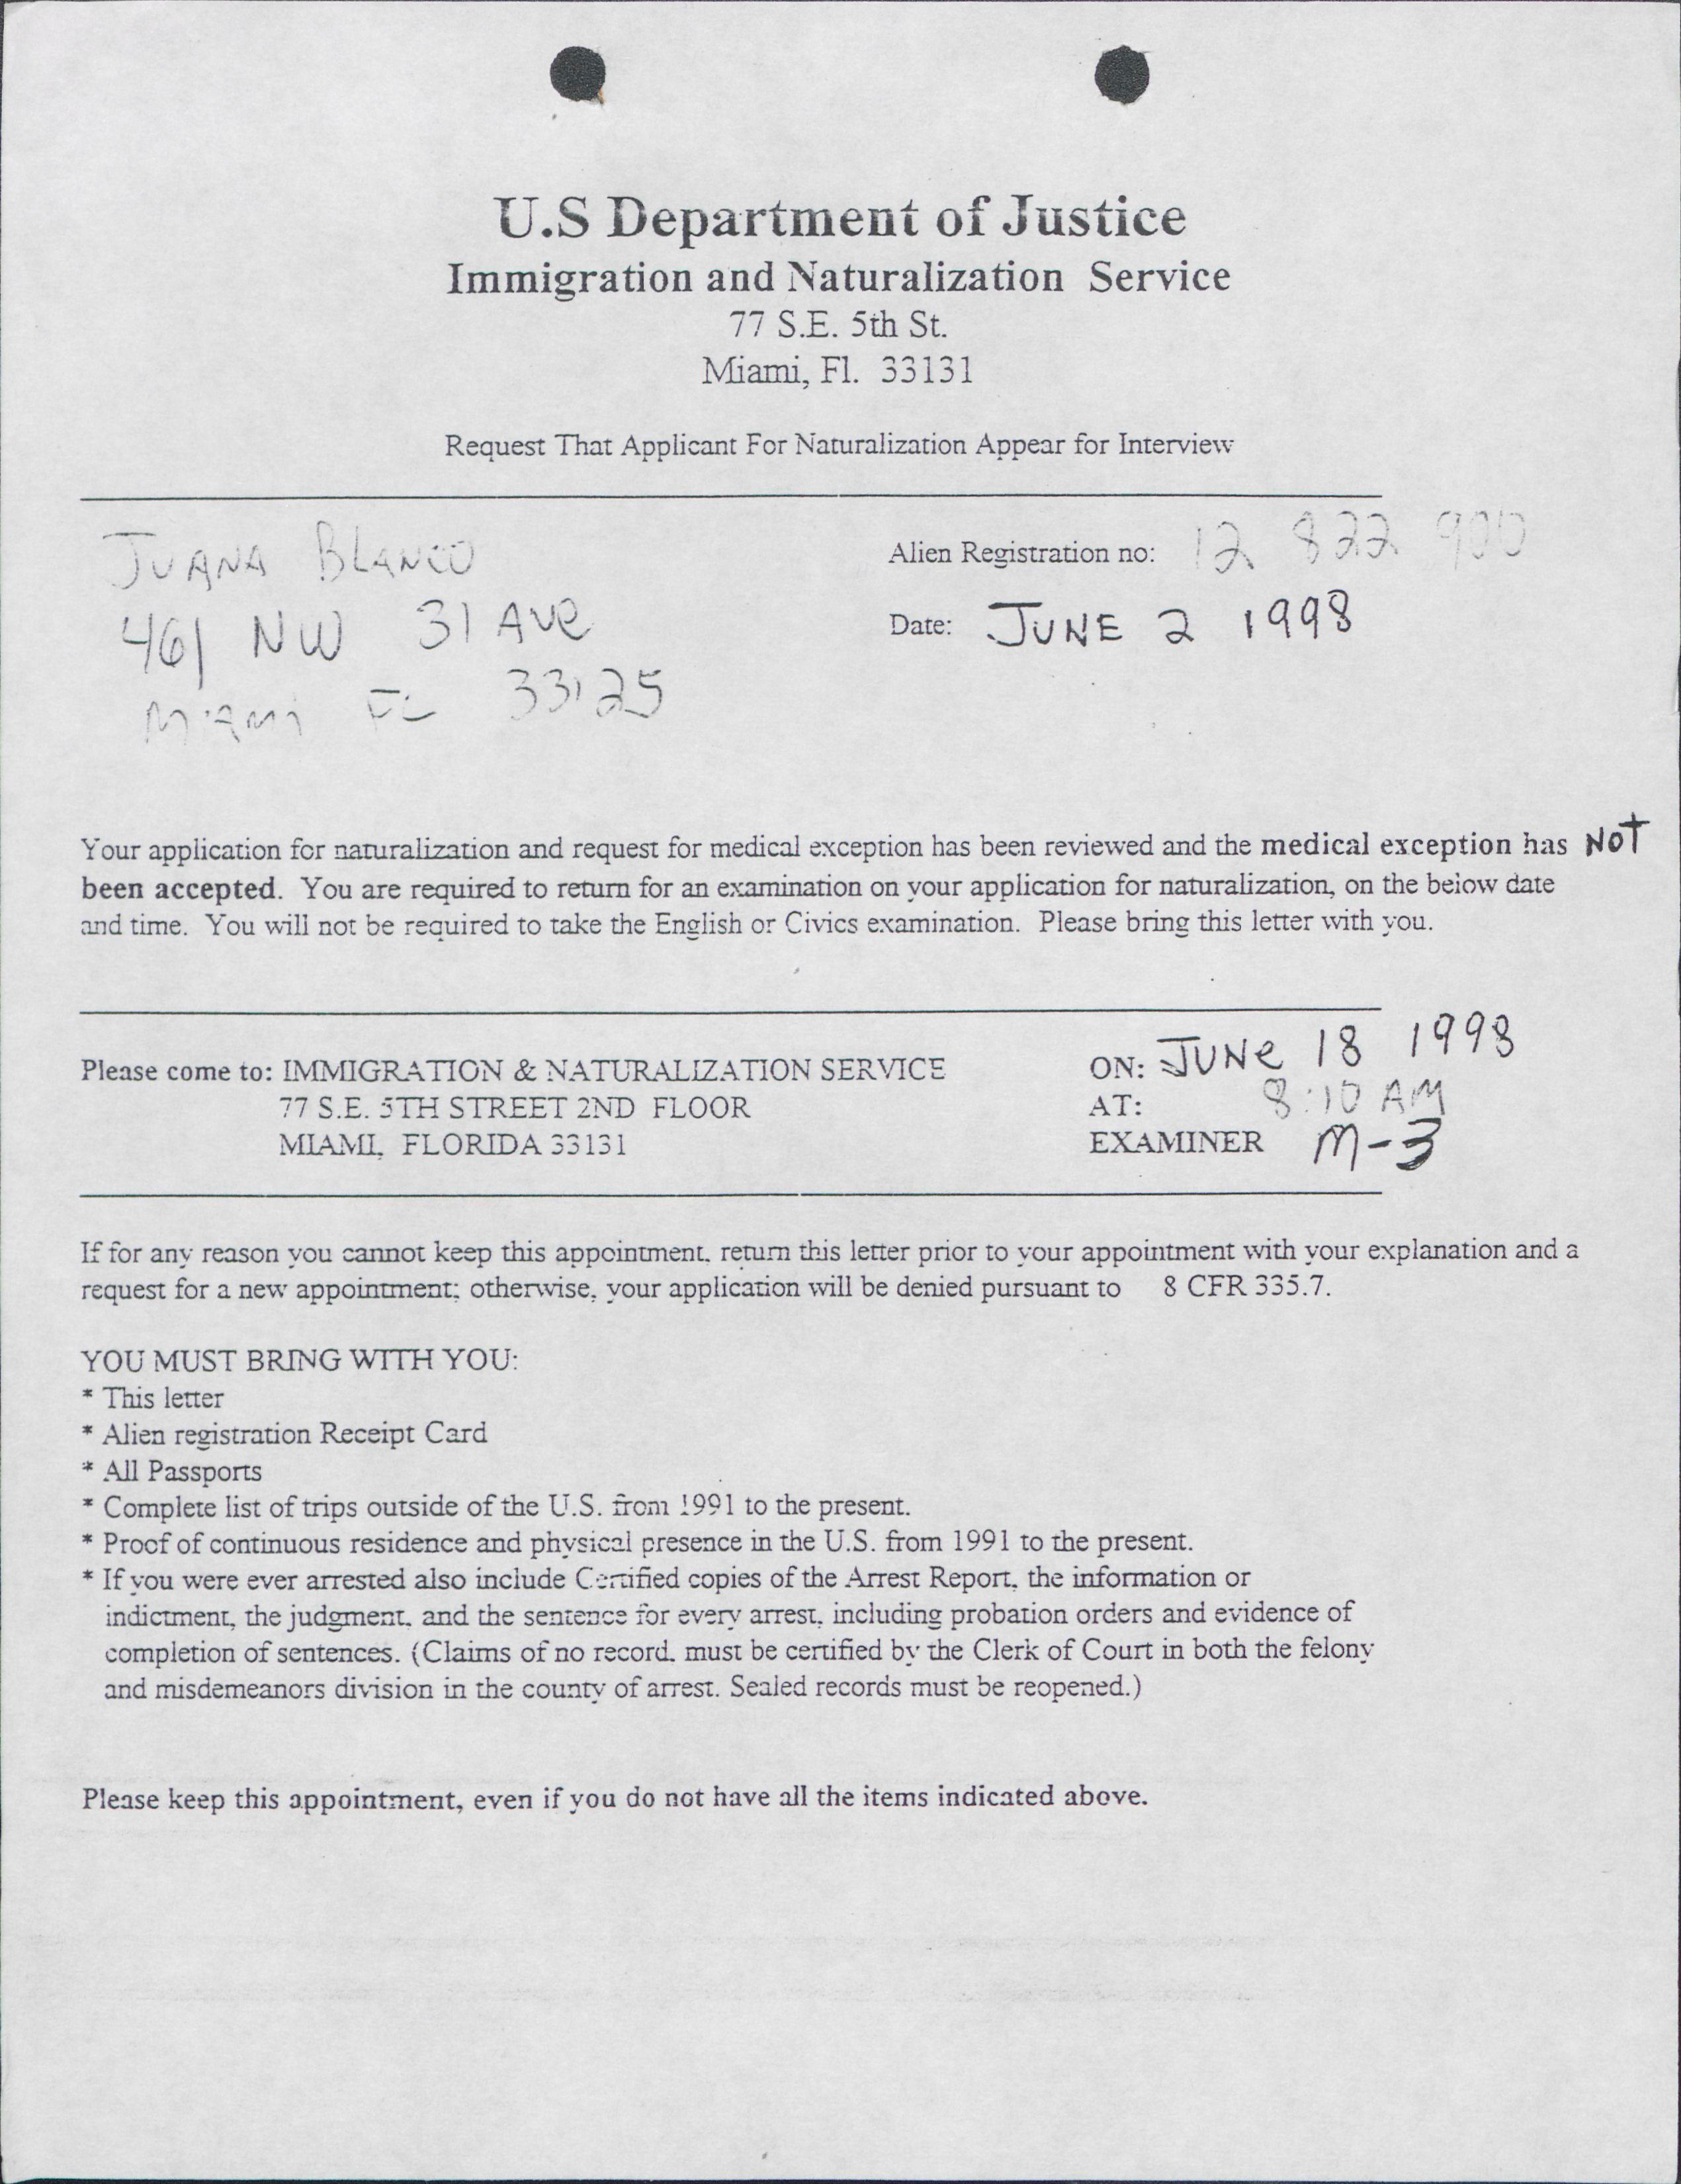 U.S Department of Justice
Immigration and Naturalization Service
77 S.E. 5th St.
Miami, Fl. 33131
Request That Applicant For Naturalization Appear for Interview
JUANA BLANCO
Alien Registration no: 12 822 900
461 NW 31 Ave
Date: JUNE 2 1998
Miami FL 33125
Your application for naturalization and request for medical exception has been reviewed and the medical exception has NOT
been accepted. You are required to return for an examination on your application for naturalization, on the below date
and time. You will not be required to take the English or Civics examination. Please bring this letter with you.
Please come to: IMMIGRATION & NATURALIZATION SERVICE
ON: JUNE 18 1998
77 S.E. 5TH STREET 2ND FLOOR
AT: 8:10 AM
MIAMI, FLORIDA 33131
EXAMINER M-3
If for any reason you cannot keep this appointment, return this letter prior to your appointment with your explanation and a
request for a new appointment; otherwise, your application will be denied pursuant to 8 CFR 335.7.
YOU MUST BRING WITH YOU:
* This letter
* Alien registration Receipt Card
* All Passports
* Complete list of trips outside of the U.S. from 1991 to the present.
* Proof of continuous residence and physical presence in the U.S. from 1991 to the present.
* If you were ever arrested also include Certified copies of the Arrest Report, the information or
indictment, the judgment, and the sentence for every arrest, including probation orders and evidence of
completion of sentences. (Claims of no record, must be certified by the Clerk of Court in both the felony
and misdemeanors division in the county of arrest. Sealed records must be reopened.)
Please keep this appointment, even if you do not have all the items indicated above.